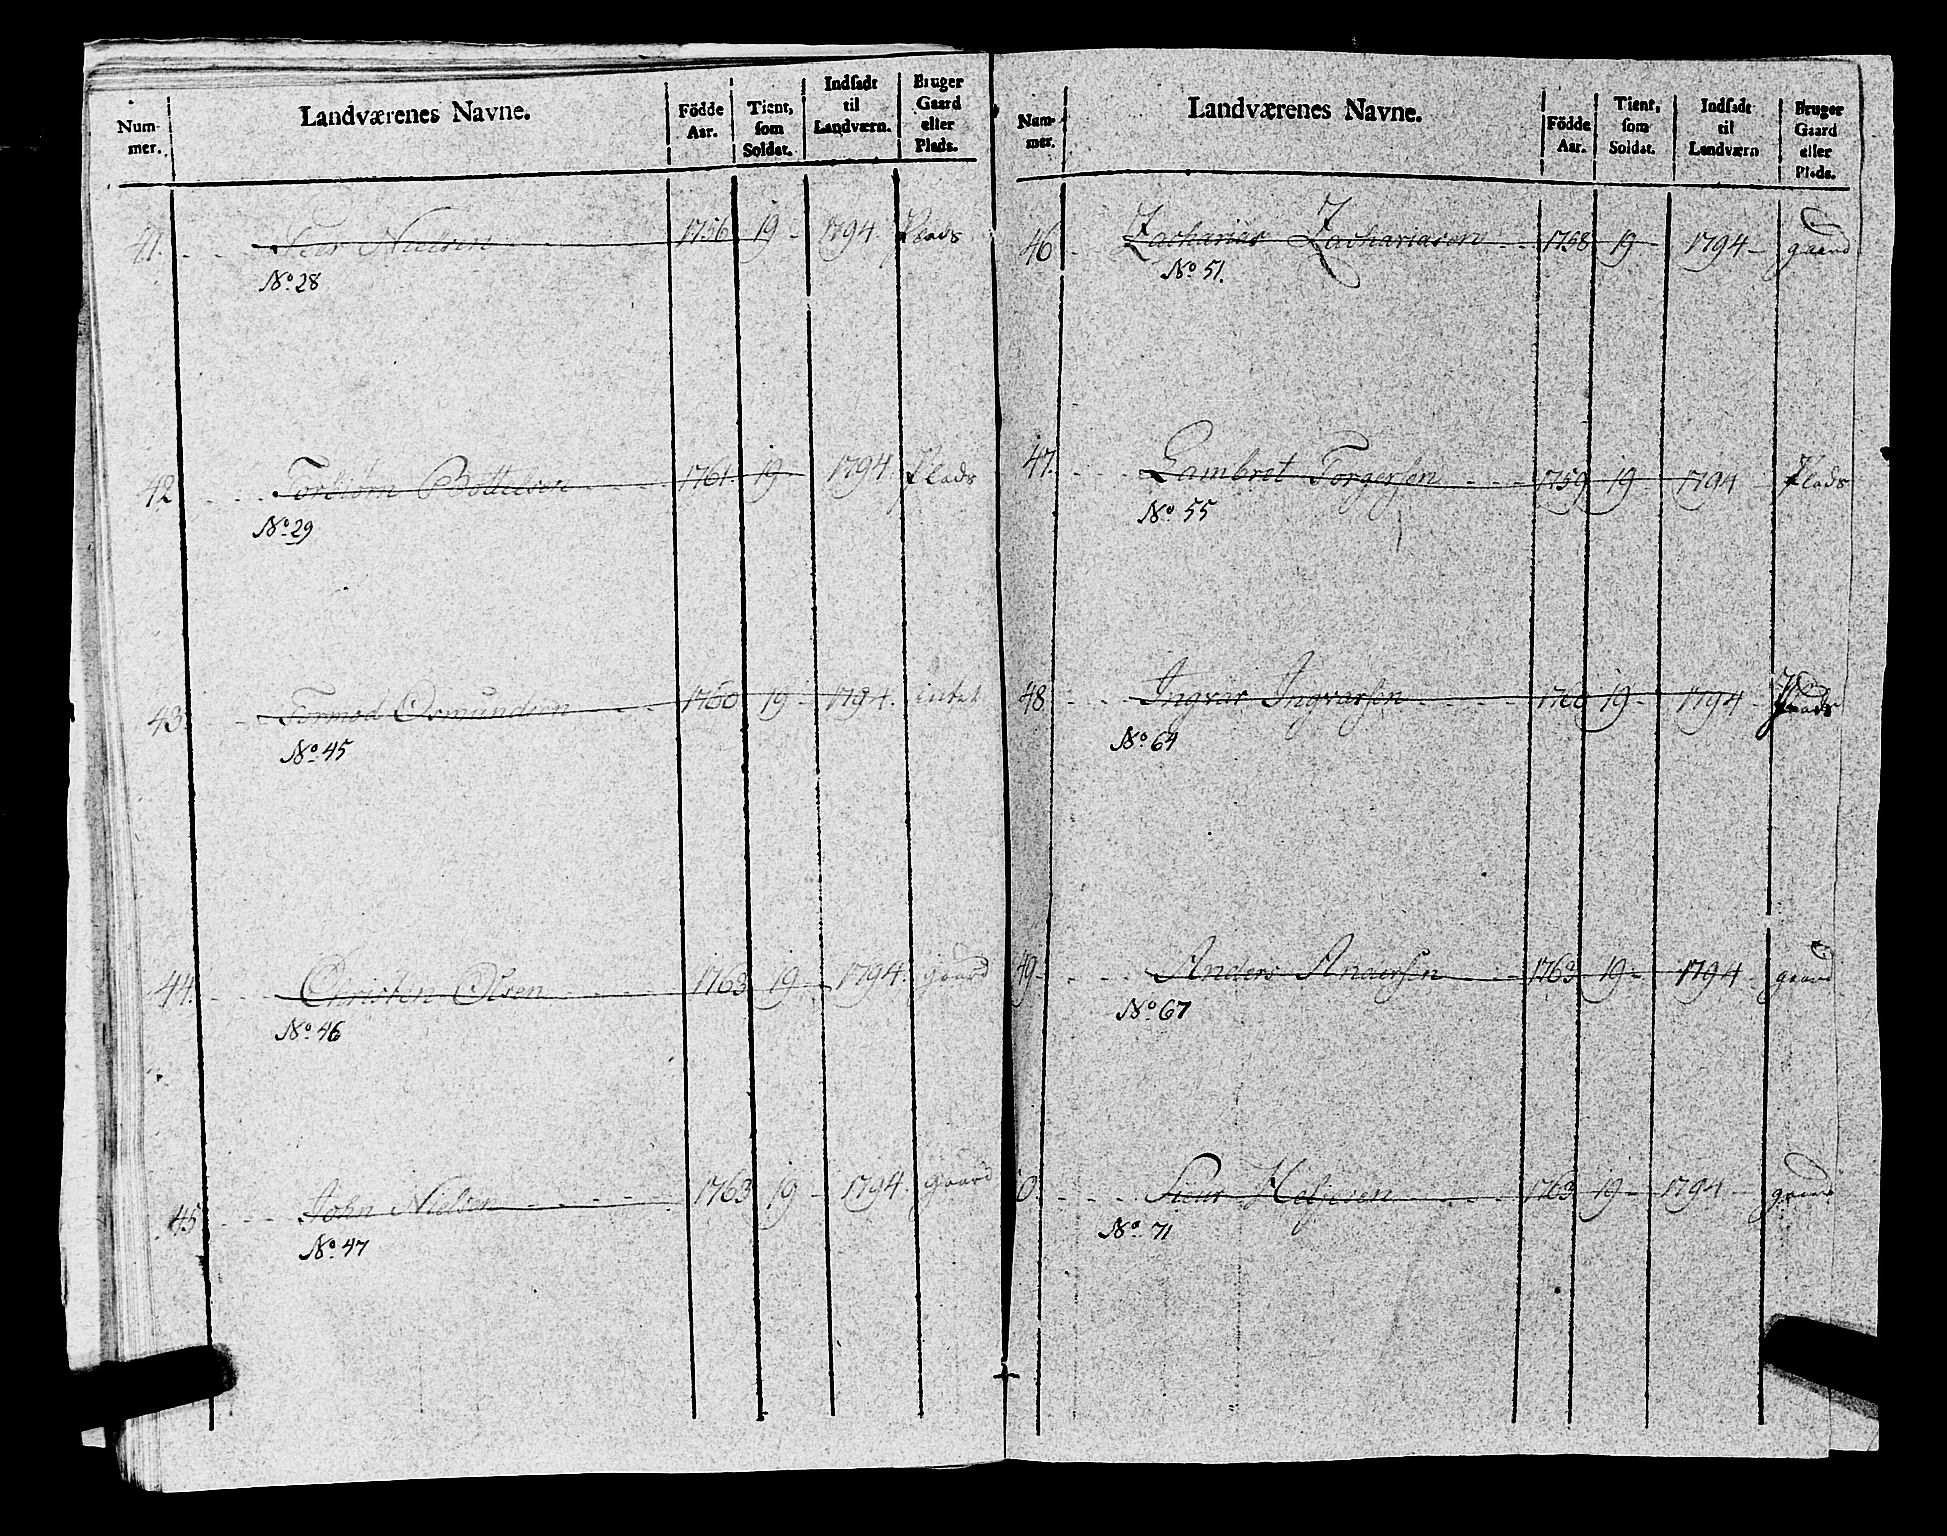 Nummer. Landværenes Navne. Födde Aar. Tient, som Soldat. Indsadt til Landværn. Bruger Gaard eller Plads.
41. Peer Nielsen 1756 19 1794 Plads
No 28
42 Torbiörn Bottelsen 1761 19 1794 Plads
No 29
43 Tormod Osmundsen 1760 19 1794 intet
No 45
44. Christen Olsen 1763 19 1794 gaard
No 46
45 John Nielsen 1763 19 1794 gaard
No 47
Nummer. Landværenes Navne. Födde Aar. Tient, som Soldat. Indsadt til Landværn Bruger Gaard eller Plads.
46 Zacharias Zachariasen 1758 19 1794 gaard
No 51.
47. Lambret Torgersen 1759 19 1794 Plads
No 55
48 Ingvar Ingvarsen 1760 19 1794 Plads
No 64
49 Anders Andersen 1763 19 1794 gaard
No 67
0. Siur 1763 19 1794 gaard
No 71